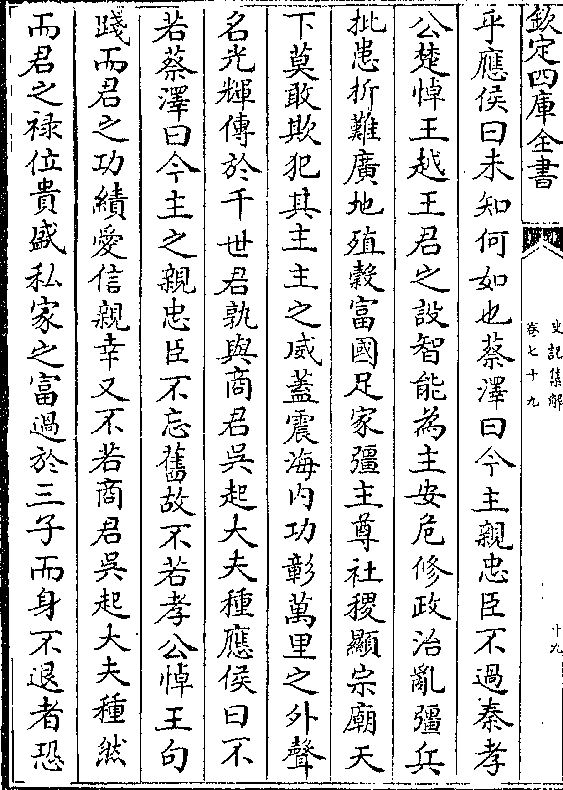 欽定四庫全書
史記集解
卷七十九
十九
乎應侯曰未知何如也蔡澤曰今主親忠臣不過秦孝
公楚悼王越王君之設智能為主安危修政治亂彊兵
批患折難廣地殖穀富國足家彊主尊社稷顯宗廟天
下莫敢欺犯其主主之威蓋震海内功彰萬里之外聲
名光輝傳於千世君孰與商君吳起大夫種應侯曰不
若蔡澤曰今主之親忠臣不忘舊故不若孝公悼王句
踐而君之功績愛信親幸又不若商君吳起大夫種然
而君之祿位貴盛私家之富過於三子而身不退者恐